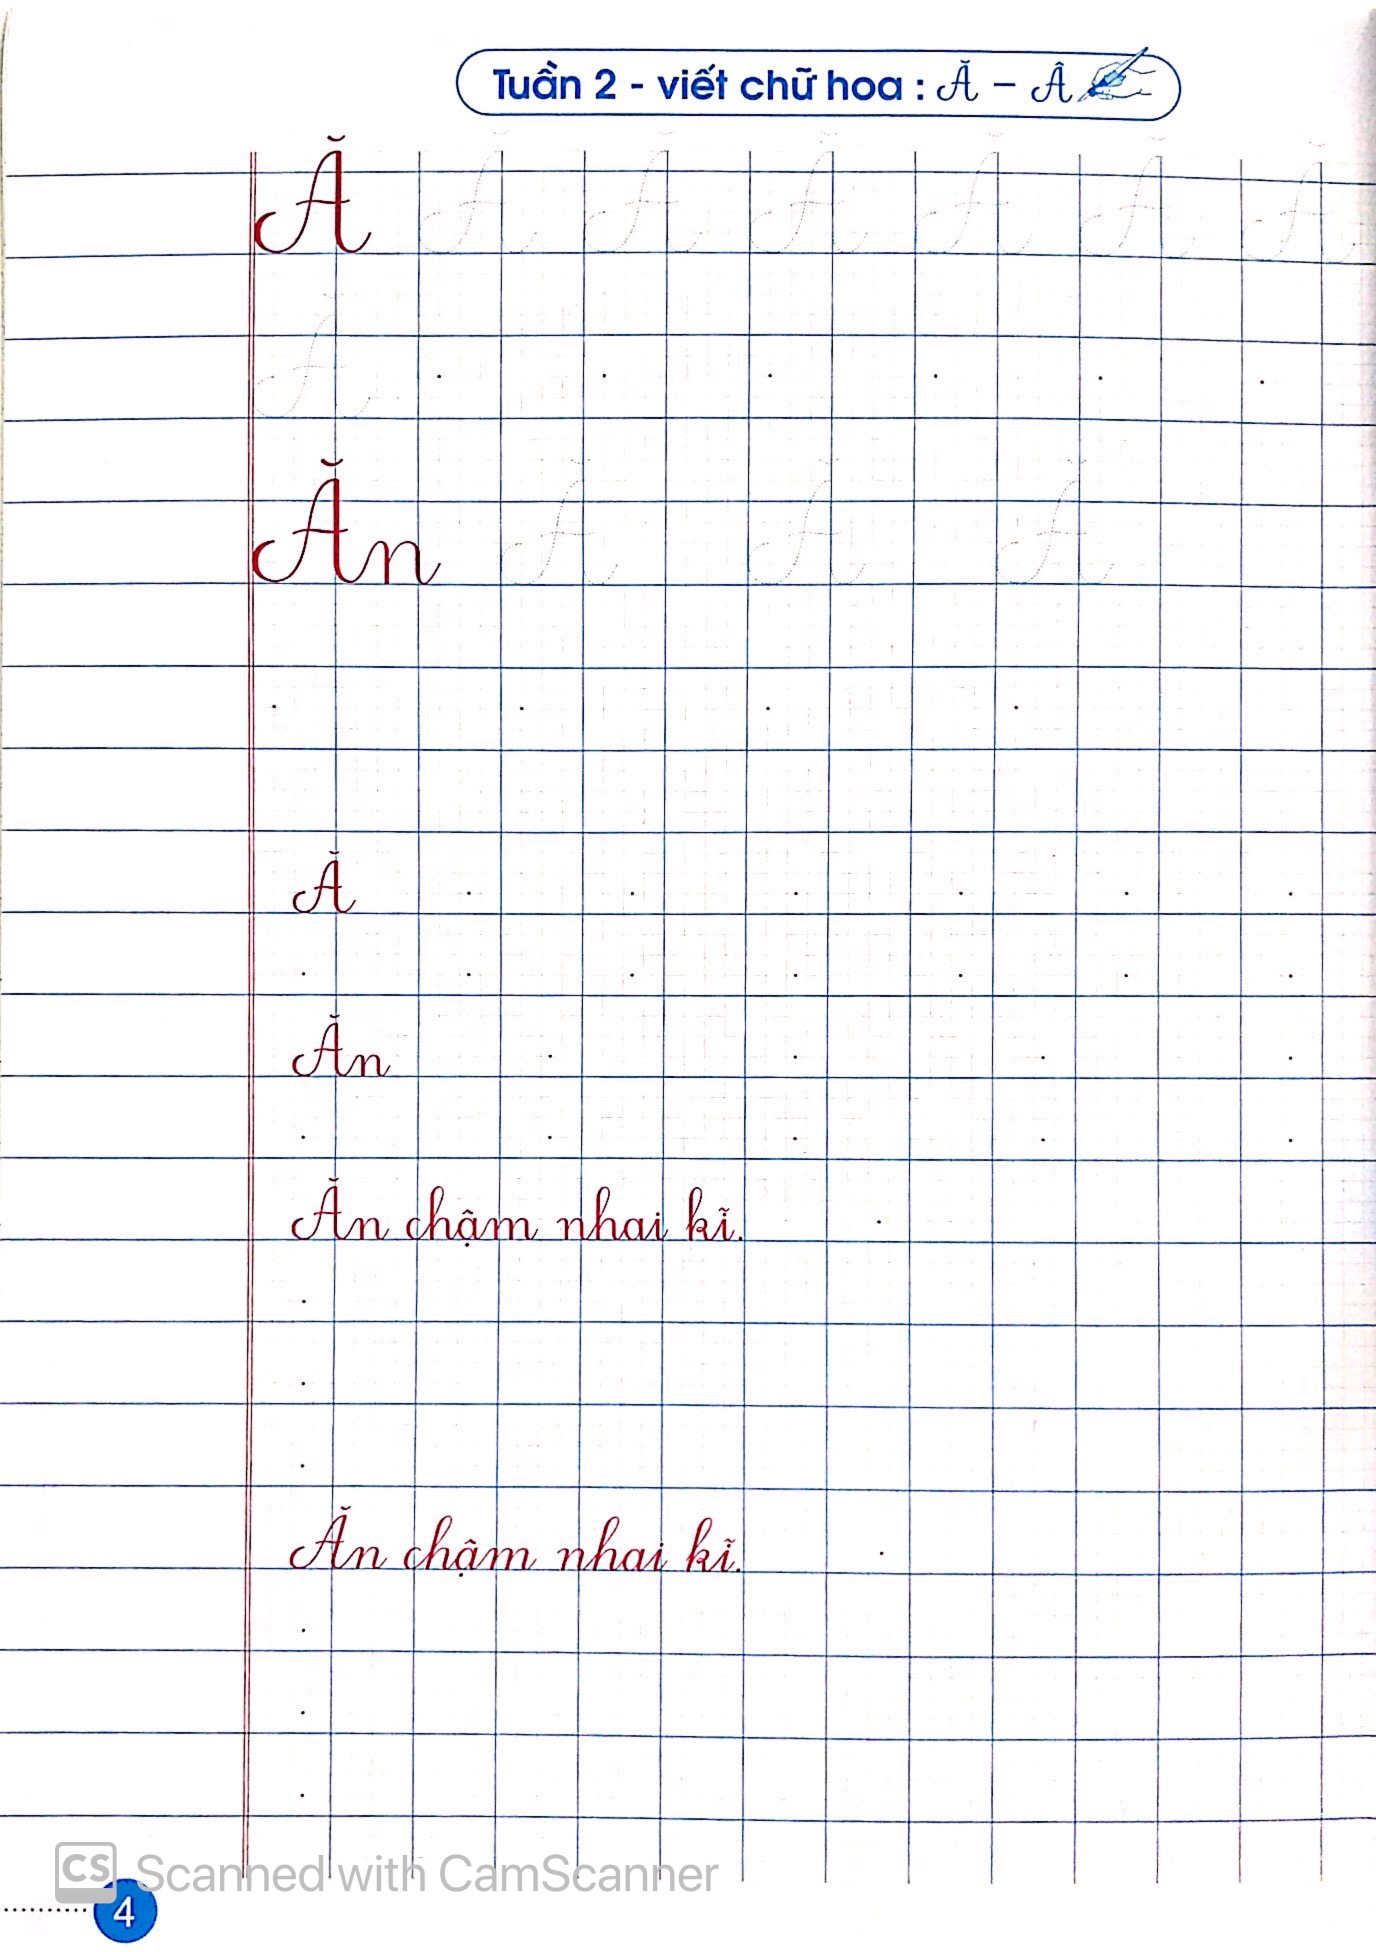 Tuần 2 - viết chữ hoa : Ă - Â
Ă Ă Ă Ă Ă Ă Ă
A
Ăn Ă Ă Ă
Ă
Ăn
Ăn chậm nhai kĩ.
Ăn chậm nhai kĩ.
CS Scanned with CamScanner
4